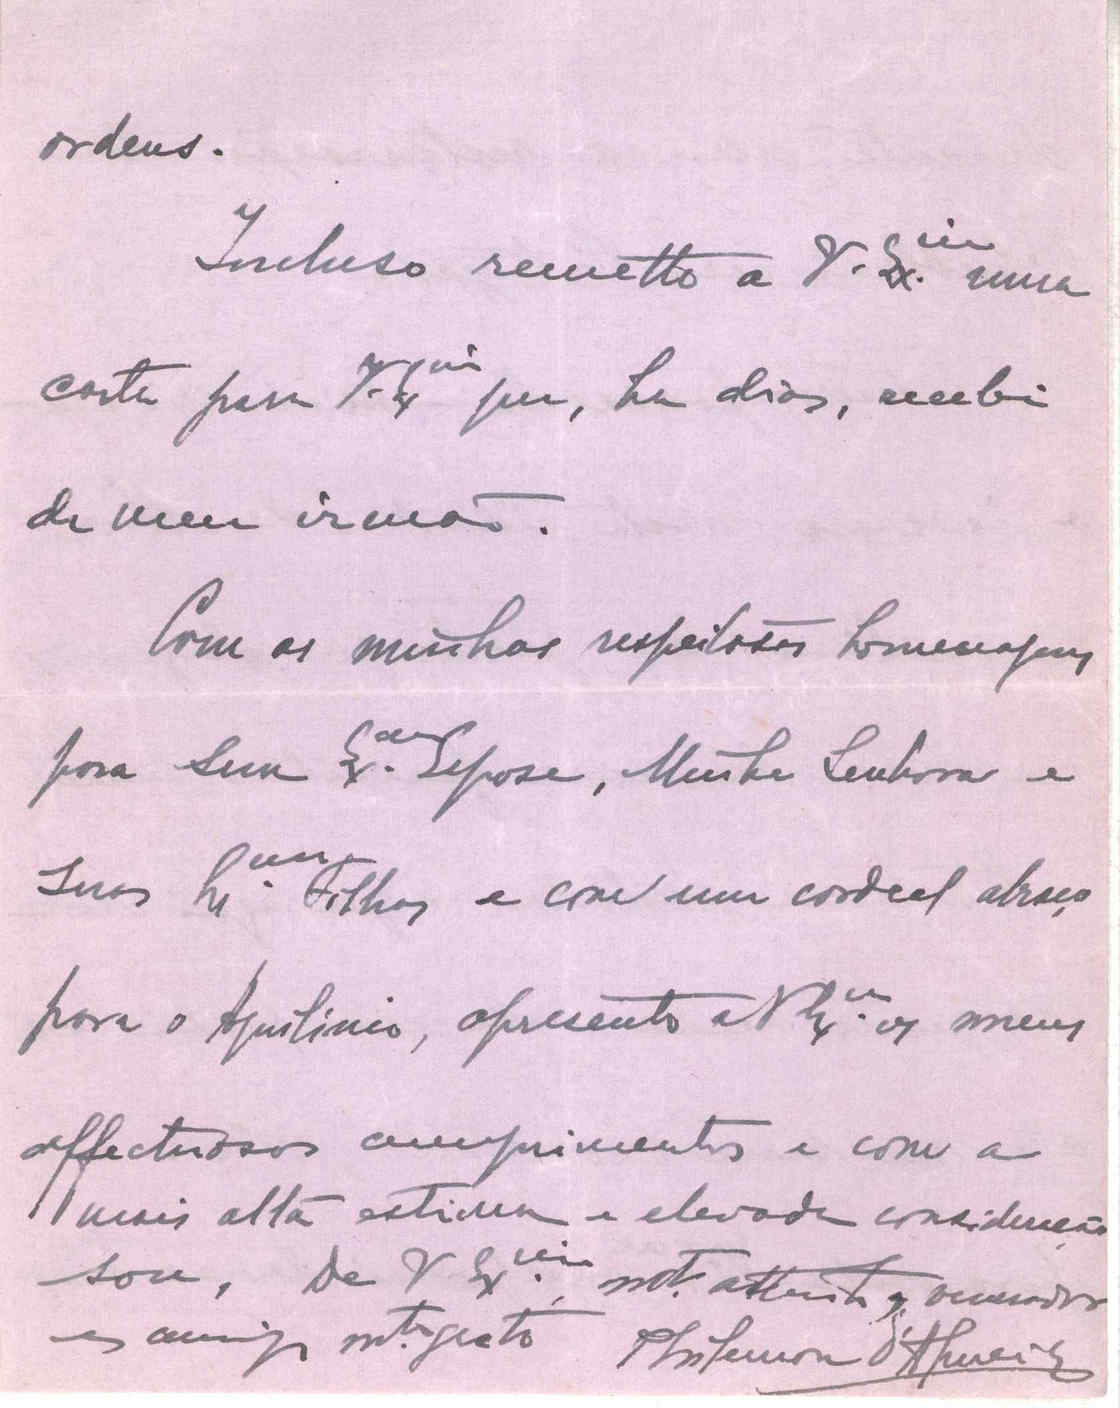 ordens.
Incluso remetto a V. Ex.cia uma
carta para V. Excia que, ha dias, recebi
de meu irmão.
Com as minhas respeitosas homenagens
para Sua Ex.ma Esposa, Minha Senhora e
suas Ex.mas Filhas e com um cordeal abraço
para o Aquilino, apresento a V Ex.cia os meus
affectuosos cumprimentos e com a
mais alta estima e elevada consideração
sou, De V Ex.cia, mt.º attento venerador
e amigo mt.º grato Philemon d'Almeida